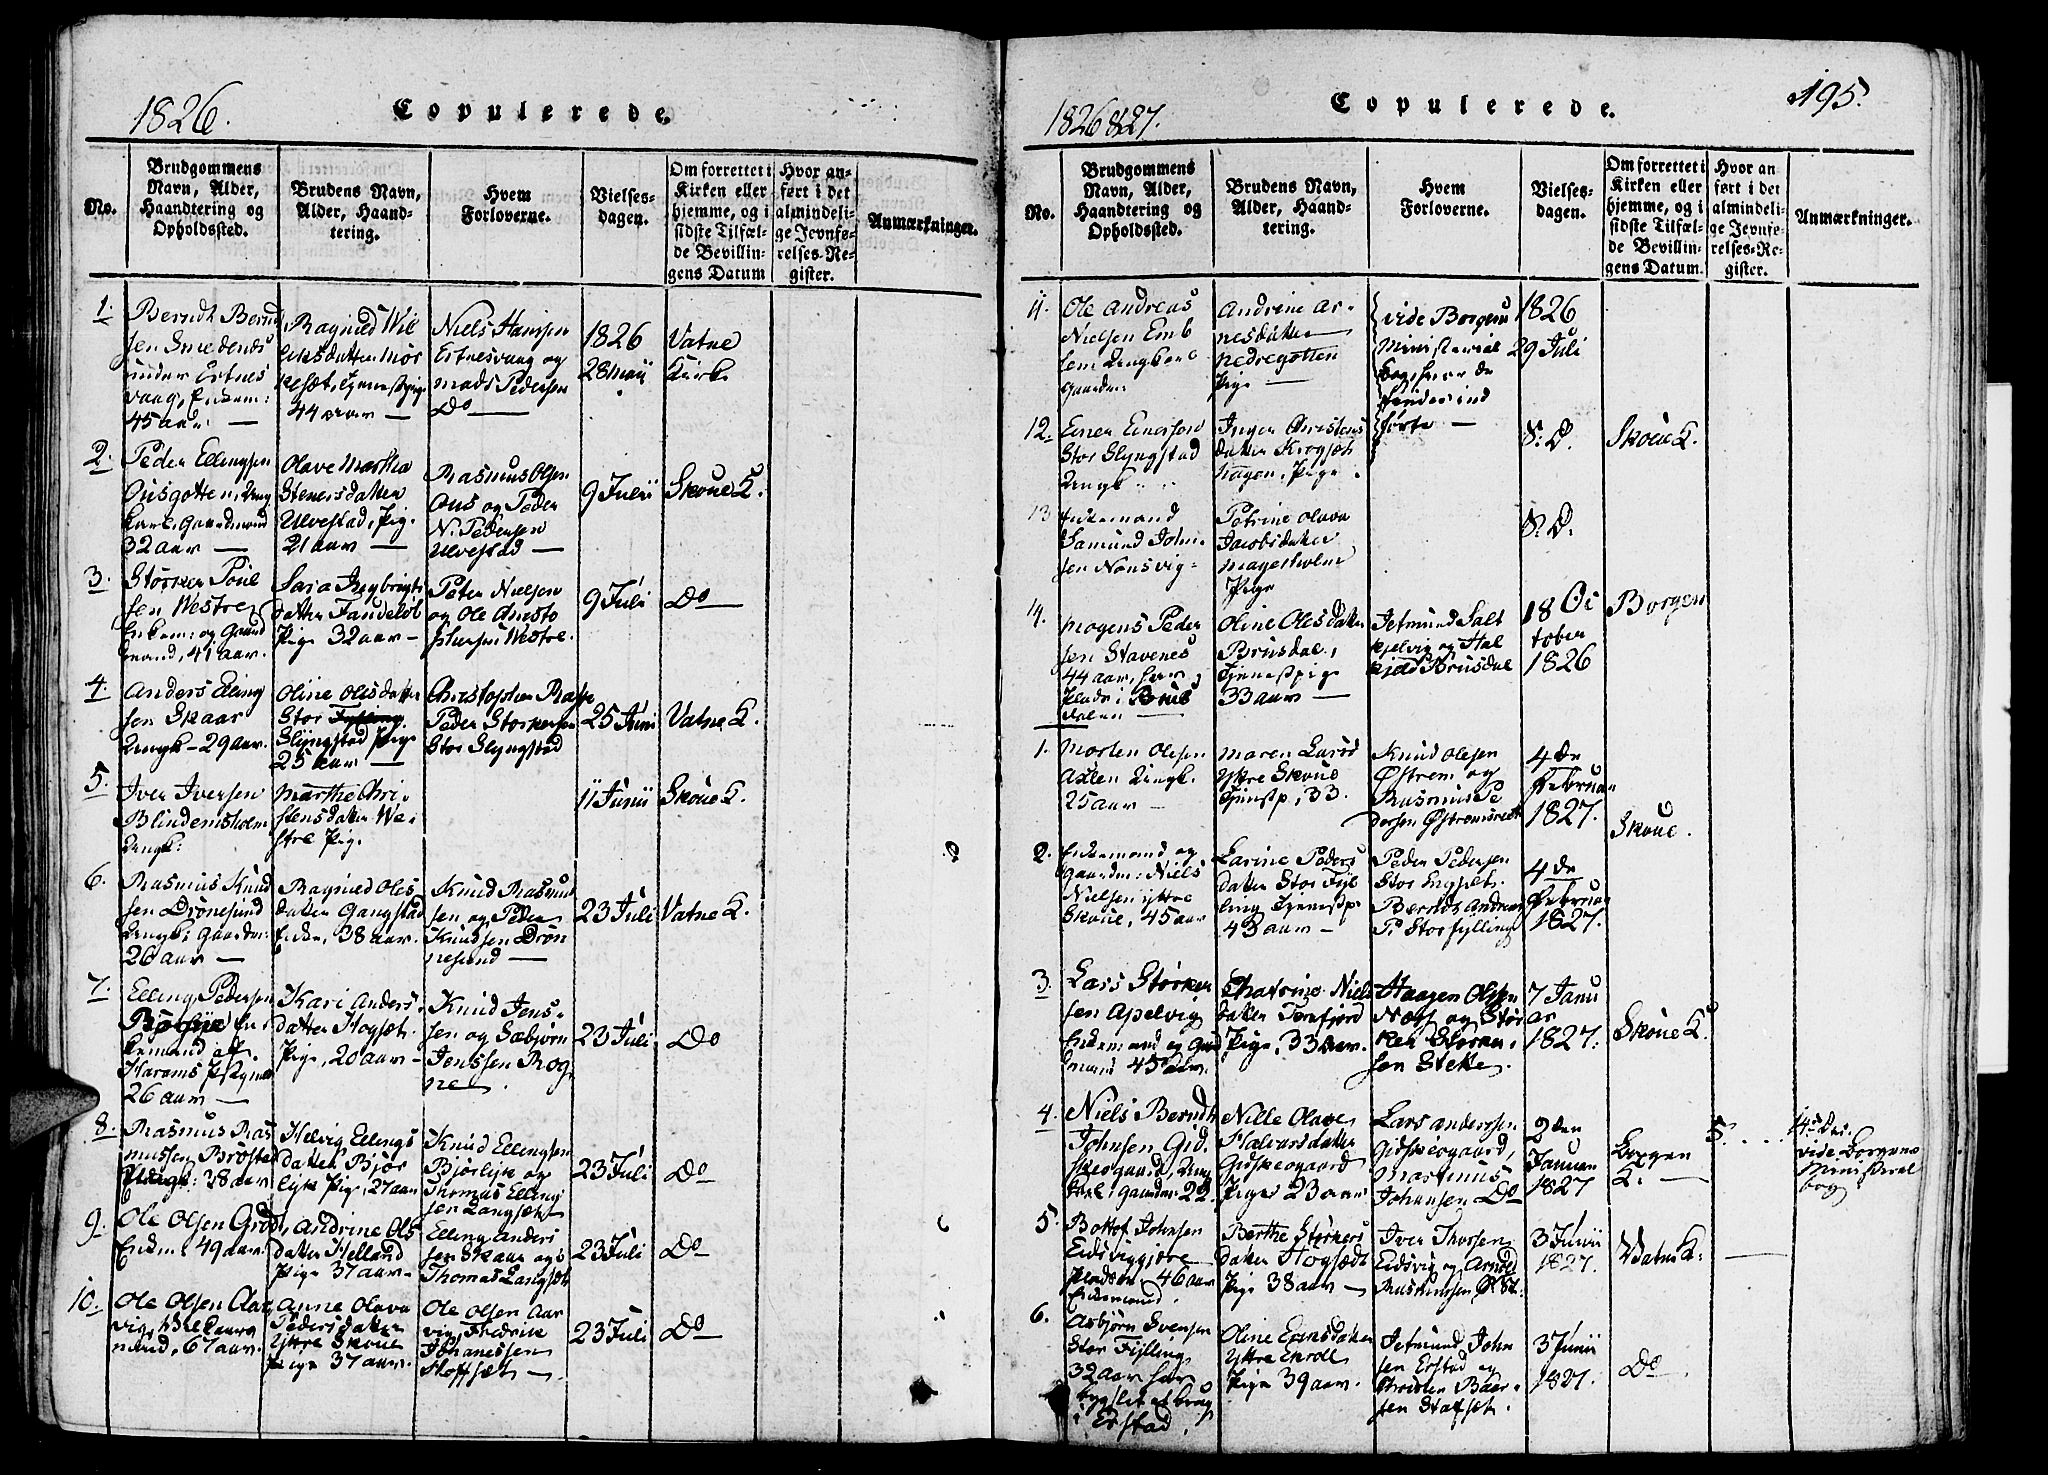 1826.
Copulerede.
No.
Brudgommens
Navn, Alder,
Haandtering og
Opholdssted.
Brudens Navn,
Alder, Haand-
tering.
Hvem
Forloverne.
Vielses-
dagen.
Om forrettet i
Kirken eller
hjemme, og i
sidste Tilfæl-
de Bevillin-
gens Datum
Hvor an-
ført i det
almindeli-
ge Jevnfø-
relses-Re-
gister.
Anmærkninger.
1.
Berndt Bernd
sen Smedenæs
under
vaag, Enkem:
45 aar —
Ragnild Wil
44 aar —
Niels Hansen
Ertnesvaag og
Mads Pedersen
Do —
1826
28 Maii
Vatne
Kirke
2.
Peder Ellingsen
Ousgotten, Ung
karl, Gaardmand
32 aar —
Olave Martha
Stenersdatter
Ulvestad, Pige
21 aar —
Rasmus Olsen
Ous og Peder
N. Pedersen
Ulvestad —
9 Julii
Skoue K.
3.
Størker Poul
sen Westre
Enkem: og Gaard
mand, 41 aar.
Sara Ingbrigts
datter
Pige 32 aar —
Peter Nielsen
og Ole Christo
phersen Westre.
9 Juli
Do
4.
Anders Elling
sen Skaar
Ungk — 29 aar.
Oline Olesdatter
Stor Fylling
Slyngstad Pige
25 aar —
Christopher
Peder Størkersen
Stor Slyngstad
25 Juni
Vatne K.
5.
Iver Iversen
Blindemsholm
Ungk:
Marthe Chri-
stensdatter We-
stre Pige
11 Junii
Skoue K.
6.
Rasmus Knud
sen Drønesund
Ungk: Gaardm:
26 aar —
Ragnild Oles
datter Gangstad
Enke, 38 aar.
Knud Rasmus
sen og Peder
Knudsen Drøn
nesund —
23 Juli
Vatne K.
7.
Elling Pedersen
Rogne En-
kemand af
Harams
26 aar —
Kari Anders-
datter Hogset
Pige, 20 aar —
Knud Jens-
sen og Sæbjørn
Jenssen Rog
ne.
23 Juli
Do
8.
Rasmus Ras
mussen Brøste
Ungk: 38 aar
Helvig Ellings
datter Bjør
lyk Pige, 27 aar
Knud Ellingsen
Bjørlyk og
Thomas Elling
sen Langset
23 Juli
Do
9.
Ole Olsen
Enkm. 49 aar.
Andrine Ols
datter Helland
Pige 37 aar —
Elling Anders
sen Skaar og
Thomas Langset
23 Juli
Do
10.
Ole Olsen Aar
vig,
mand, 67 aar.
Anne Olava
Pedersdatter
Yttre Skoue
Pige 37 aar.
Ole Olsen Aar
vig, Fredrik
Johanessen
23 Juli
Do
1826 & 27.
Copulerede.
195.
No.
Brudgommens
Navn, Alder,
Haandtering og
Opholdssted.
Brudens Navn,
Alder, Haand-
tering.
Hvem
Forloverne.
Vielses-
dagen.
Om forrettet i
Kirken eller
hjemme, og i
sidste Tilfæl-
de Bevillin-
gens Datum.
Hvor an-
ført i det
almindeli-
ge Jevnfø-
relses-Re-
gister.
Anmærkninger.
11.
Ole Andreas
Nielsen Emb
lem Ungkarl
Gaardm:
Andrine Ar-
nesdatter
Nedregotten
Pige —
vide Borgens
Ministerial
bog, hvor de
findes ind
førte —
1826
29 Juli
12.
Einer Einersen
Stor Slyngstad
Ungk
Inger Christens
datter Krogset
hagen, Pige.
S. D.
Skoue K.
13.
Enkemand
Samund John-
sen Nonsvig-
Petrine Olava
Jacobsdatter
Mageholm
Pige
S. D.
14.
Mogens Peder
sen Stavenes
44 aar,
i Brus
dalen —
Oline Olesdatter
Brusdal,
Tjenestpig
33 aar —
Jetmund Salt
kjelvig og Hal
kjeld Brusdal
18 Oc
tober
1826
Borgen
1.
Morten Olesen
Axlen Ungk.
25 aar —
Maren Larsd
Ytre Skoue
Tjenestp, 33.
Knud Olesen
Østrem og
Rasmus Pe
dersen Østremsreet
4 de
Februar
1827.
Skoue.
2.
Enkemand og
Gaardm: Niels
Nielsen ytre
Skoue, 45 aar
Larine Peders
datter Stor Fyl
ling Tjenestp
43 aar —
Peder Pedersen
Stor Engset.
Berndt Andreas
P. Storfylling
4 de
Februar
1827.
3.
Lars Størker
sen Apelvig
Enkemand og Gaard
mand 45 aar.
Chatrine Niels
datter Tenfjord
Pige, 33 aar.
Haagen Olsen
og Stør
ker Storker-
sen Steke.
7 Janu
ar
1827.
Skoue K.
4.
Niels Berndt
Johnsen Gid-
skeogaard, Ung
karl: Gaardm: 22
Nille Olave
Halvarsdatter
Gidskeogaard
Piges 23 aar
Lars Anderssen
Gidskeogaard,
Martinus
Johansen Do
2 den
Januar
1827
Borgen
K. —
5. . . . .
vide Borgens
Ministerial
bog
5.
Bottof Johnsen
Eidsviggjøre
46 aar
Enkemand.
Berthe Størkers
datter Hogsedt
Pige 38 aar —
Iver Thorsen
Eidsvig og Arnold
Rasmussen
3 Junii
1827.
Vatne K:
6.
Asbjørn Svensen
Stor Fylling
32 aar har
bygslet et brug
i Erstad
Oline
Yttre
Pige 39 aar.
Jetmund John
sen Erstad og
3 Junii
1827.
Do